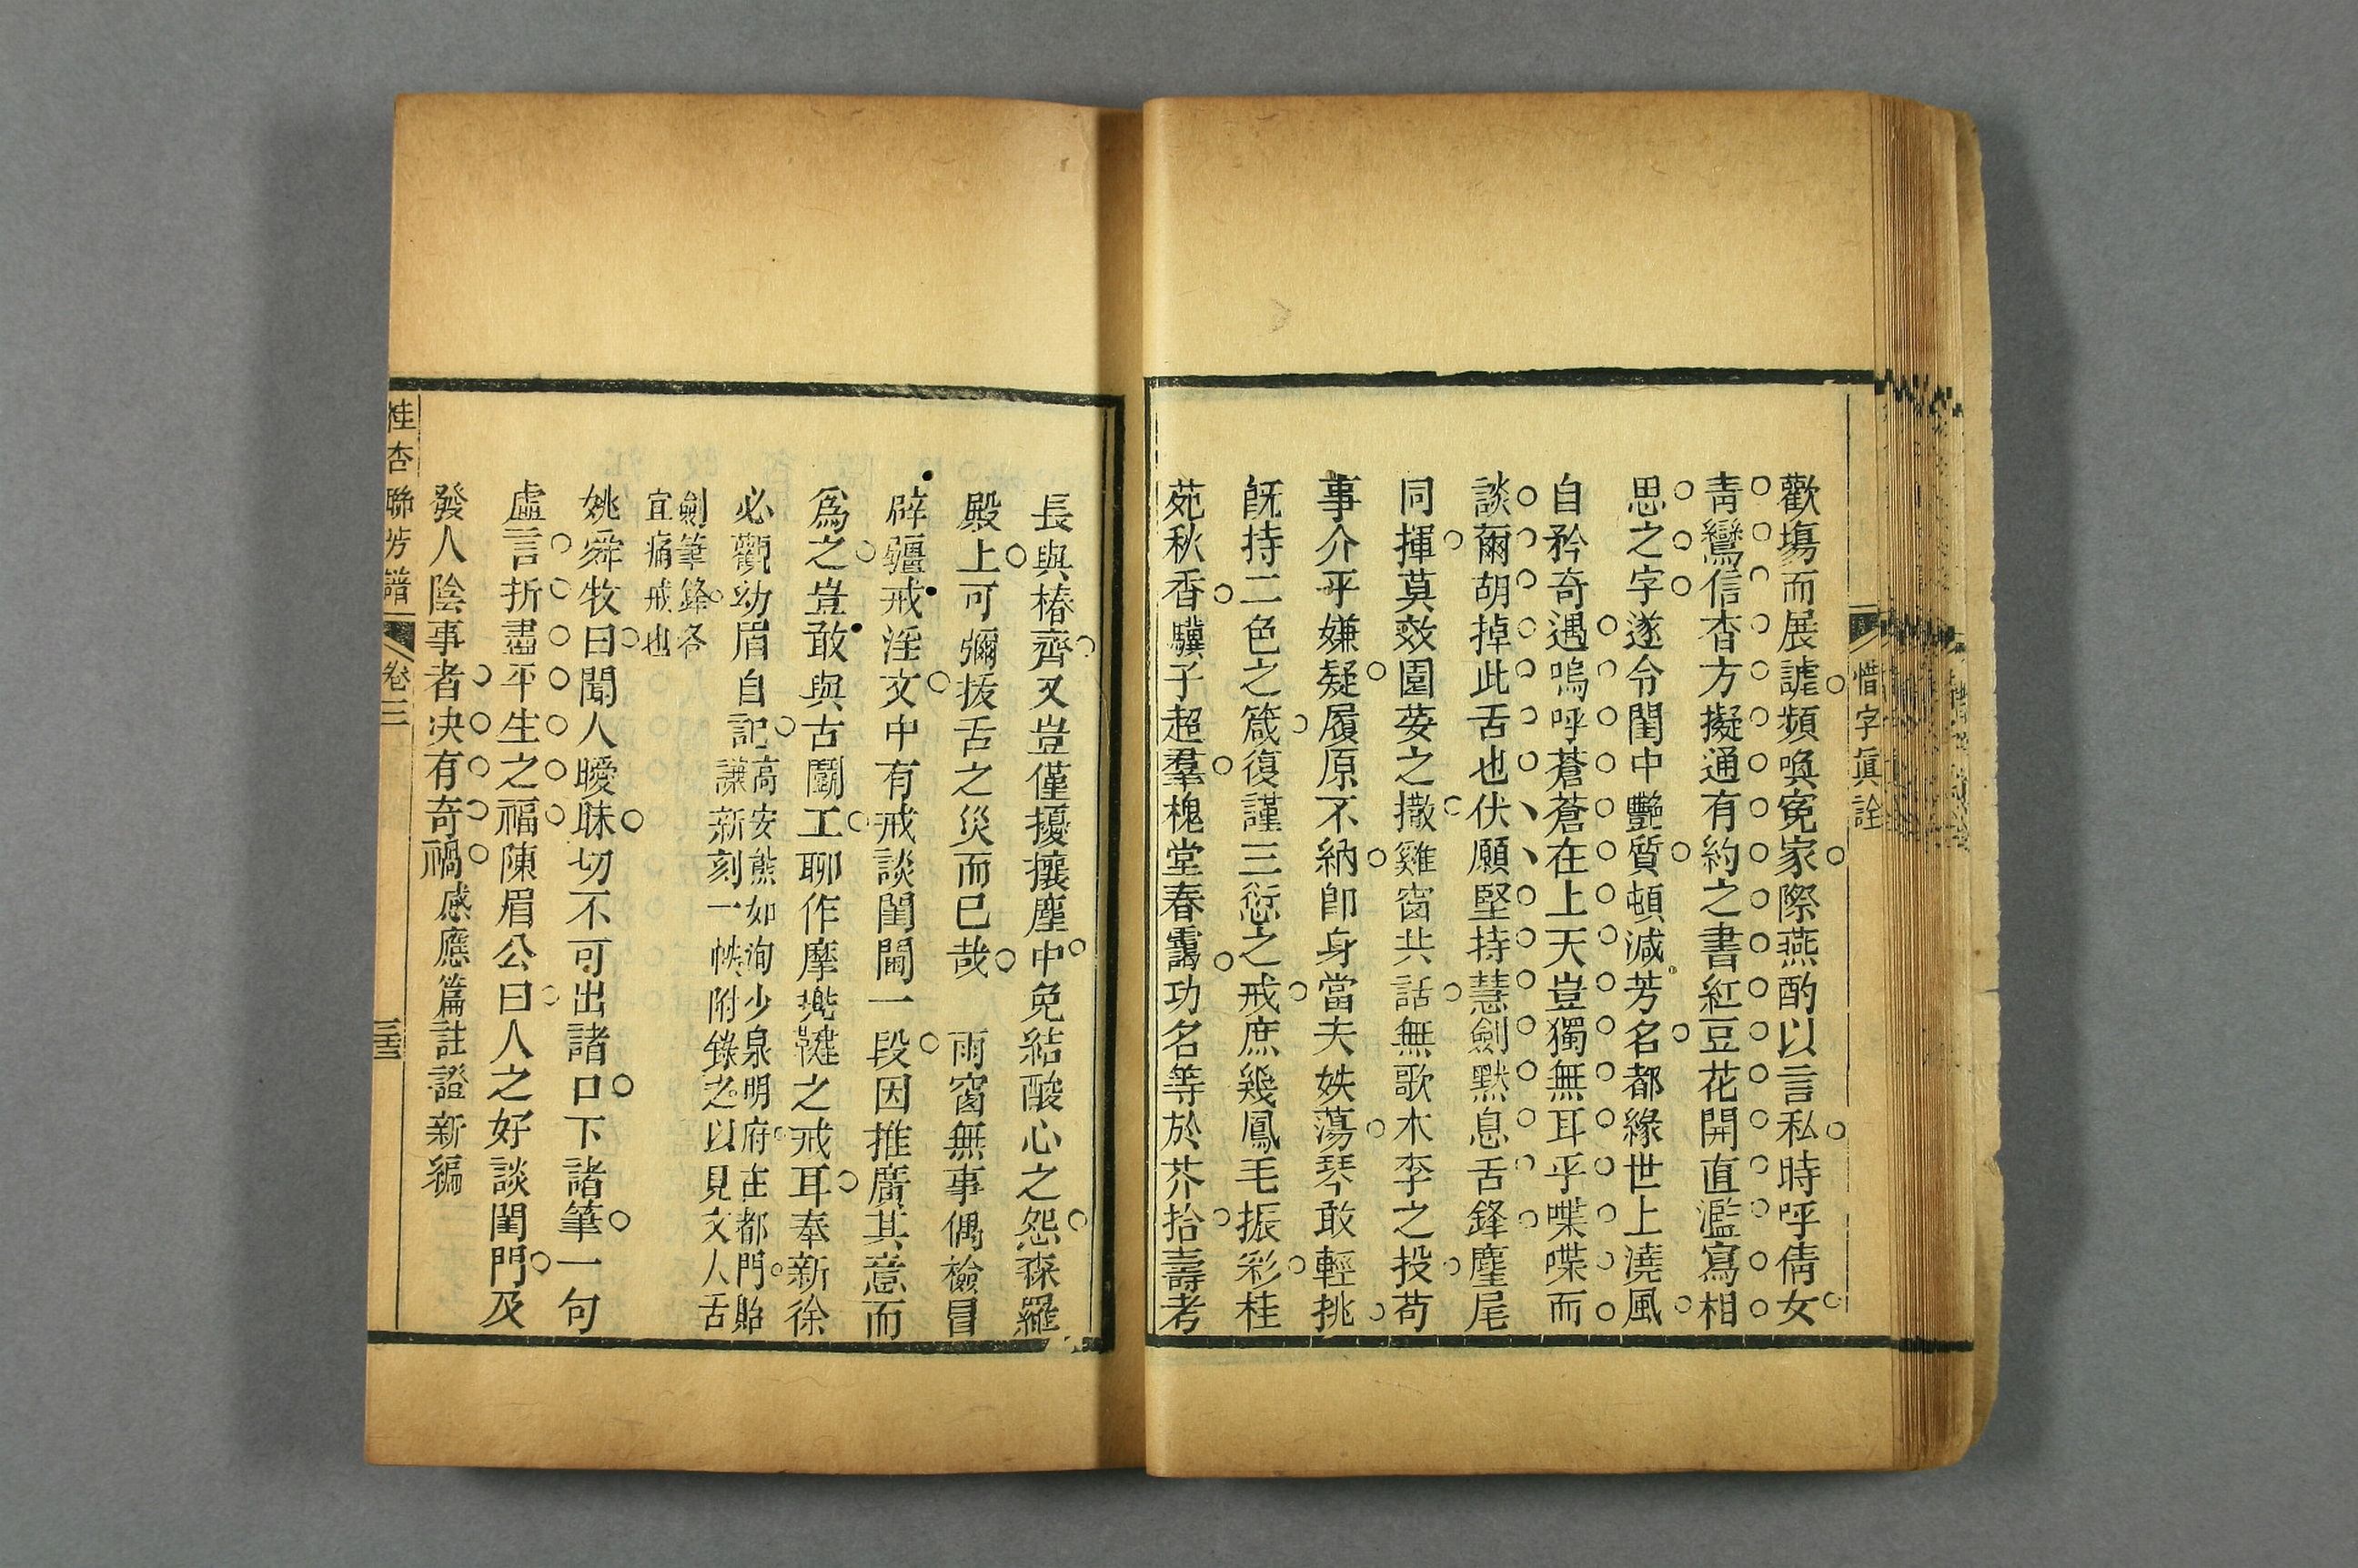 惜字眞詮
歡塲而展謔頻喚寃家際燕酌以言私時呼倩女
靑鸞信杳方擬通有約之書紅豆花開直濫寫相
思之字遂令閨中艷質頓減芳名都緣世上澆風
自矜奇遇嗚呼蒼蒼在上天豈獨無耳乎喋喋而
談爾胡掉此舌也伏願堅持慧劍黙息舌鋒麈尾
同揮莫效園荽之撒雞窗共話無歌木李之投苟
事介乎嫌疑履原不納卽身當夫妷蕩琴敢輕挑
旣持二色之箴復謹三愆之戒庶幾鳳毛振彩桂
苑秋香驥子超羣槐堂春靄功名等於芥拾壽考
長與椿齊又豈僅擾攘塵中免結酸心之怨森羅
殿上可彌拔舌之災而已哉 雨窗無事偶檢冒
辟疆戒淫文中有戒談閨閫一段因推廣其意而
爲之豈敢與古鬭工聊作摩兠鞬之戒耳奉新徐
必觀幼眉自記
高安熊如洵少泉明府在都門貽
謙新刻一帙附錄之以見文人舌
劍筆鋒各
宜痛戒也
姚舜牧曰聞人曖昧切不可出諸口下諸筆一句
虛言折盡平生之福陳眉公曰人之好談閨門及
發人陰事者决有奇禍感應篇註證新編
桂杏聯芳譜
卷三